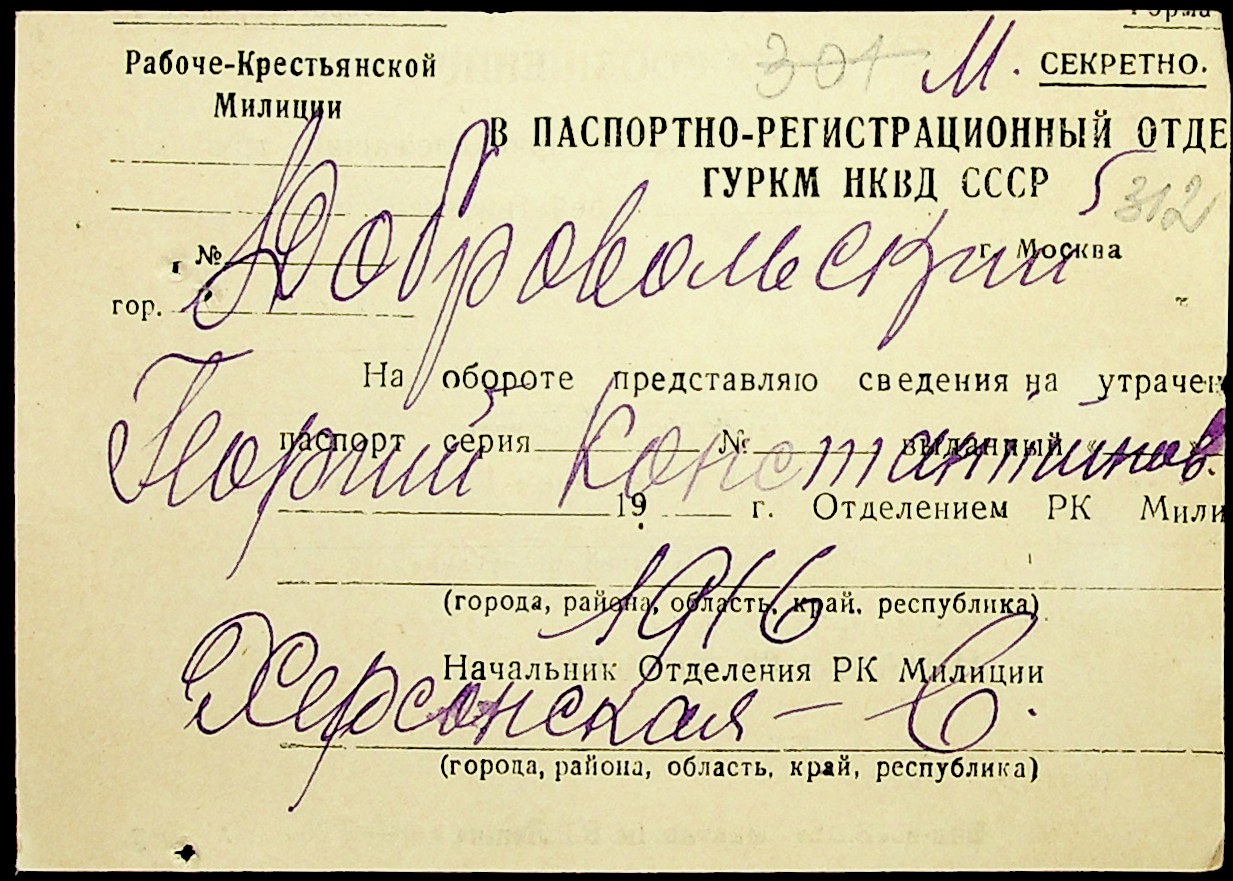 Форма
Рабоче-Крестьянской
Милиции
301 М. СЕКРЕТНО.
В ПАСПОРТНО-РЕГИСТРАЦИОННЫЙ ОТДЕ
ГУРКМ НКВД СССР
312
№ г. Москва
Добровольский
гор.
На обороте представляю сведения на утрачен
паспорт серия № выданный «
Георгий Константинов.
19 г. Отделением РК Мили
1916
(города, района, область, край, республика)
Начальник Отделения РК Милиции
Херсонская –
(города, района, область, край, республика)